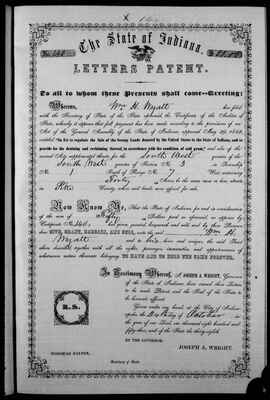 The State of Indiana.
LETTERS PATENT.
To all to whom these Presents shall come—Greeting:
Whereas, Wm H. Wyatt has filed
with the Secretary of State of the State aforesaid, the Certificate of the Auditor of
State, whereby it appears that full payment has been made according to the provisions of an
Act of the General Assembly of the State of Indiana, approved May 29, 1852,
entitled "An Act to regulate the Sale of the Swamp Lands donated by the United States to the State of Indiana, and to
provide for the draining and reclaiming thereof, in accordance with the condition of said grant," and also of the
several Acts supplemental thereto for the South West quarter of the
South West quarter of Section No. 3 in Township
No. of Range No. 7 West containing
Forty Acres be the same more or less, situate
in Pike County, when said lands were offered for sale.
Now Know Ye, That the State of Indiana for and in consideration
of the sum of Fifty Dollars paid as aforesaid, as appears by
Certificate No. has given granted bargained and sold and by these Presents
does GIVE, GRANT, BARGAIN, AND SELL, unto the said Wm H.
Wyatt and to his heirs and assigns, the said Tract
above described together with all the rights, privileges, immunities and appurtenances of
whatsoever nature thereunto belonging TO HAVE AND TO HOLD THE SAME FOREVER.
In Testimony Whereof, I, JOSEPH A. WRIGHT, Governor
of the State of Indiana have caused these Letters
to be made Patent and the Seal of the State to
be hereunto affixed.
Given under my hand, at the City of Indianapolis
the day of October in
the year of our Lord, one thousand eight hundred and
fifty and of the State the thirty eighth
L.S.
BY THE GOVERNOR,
JOSEPH A. WRIGHT.
NEHEMIAH HAYDEN,
Secretary of State.